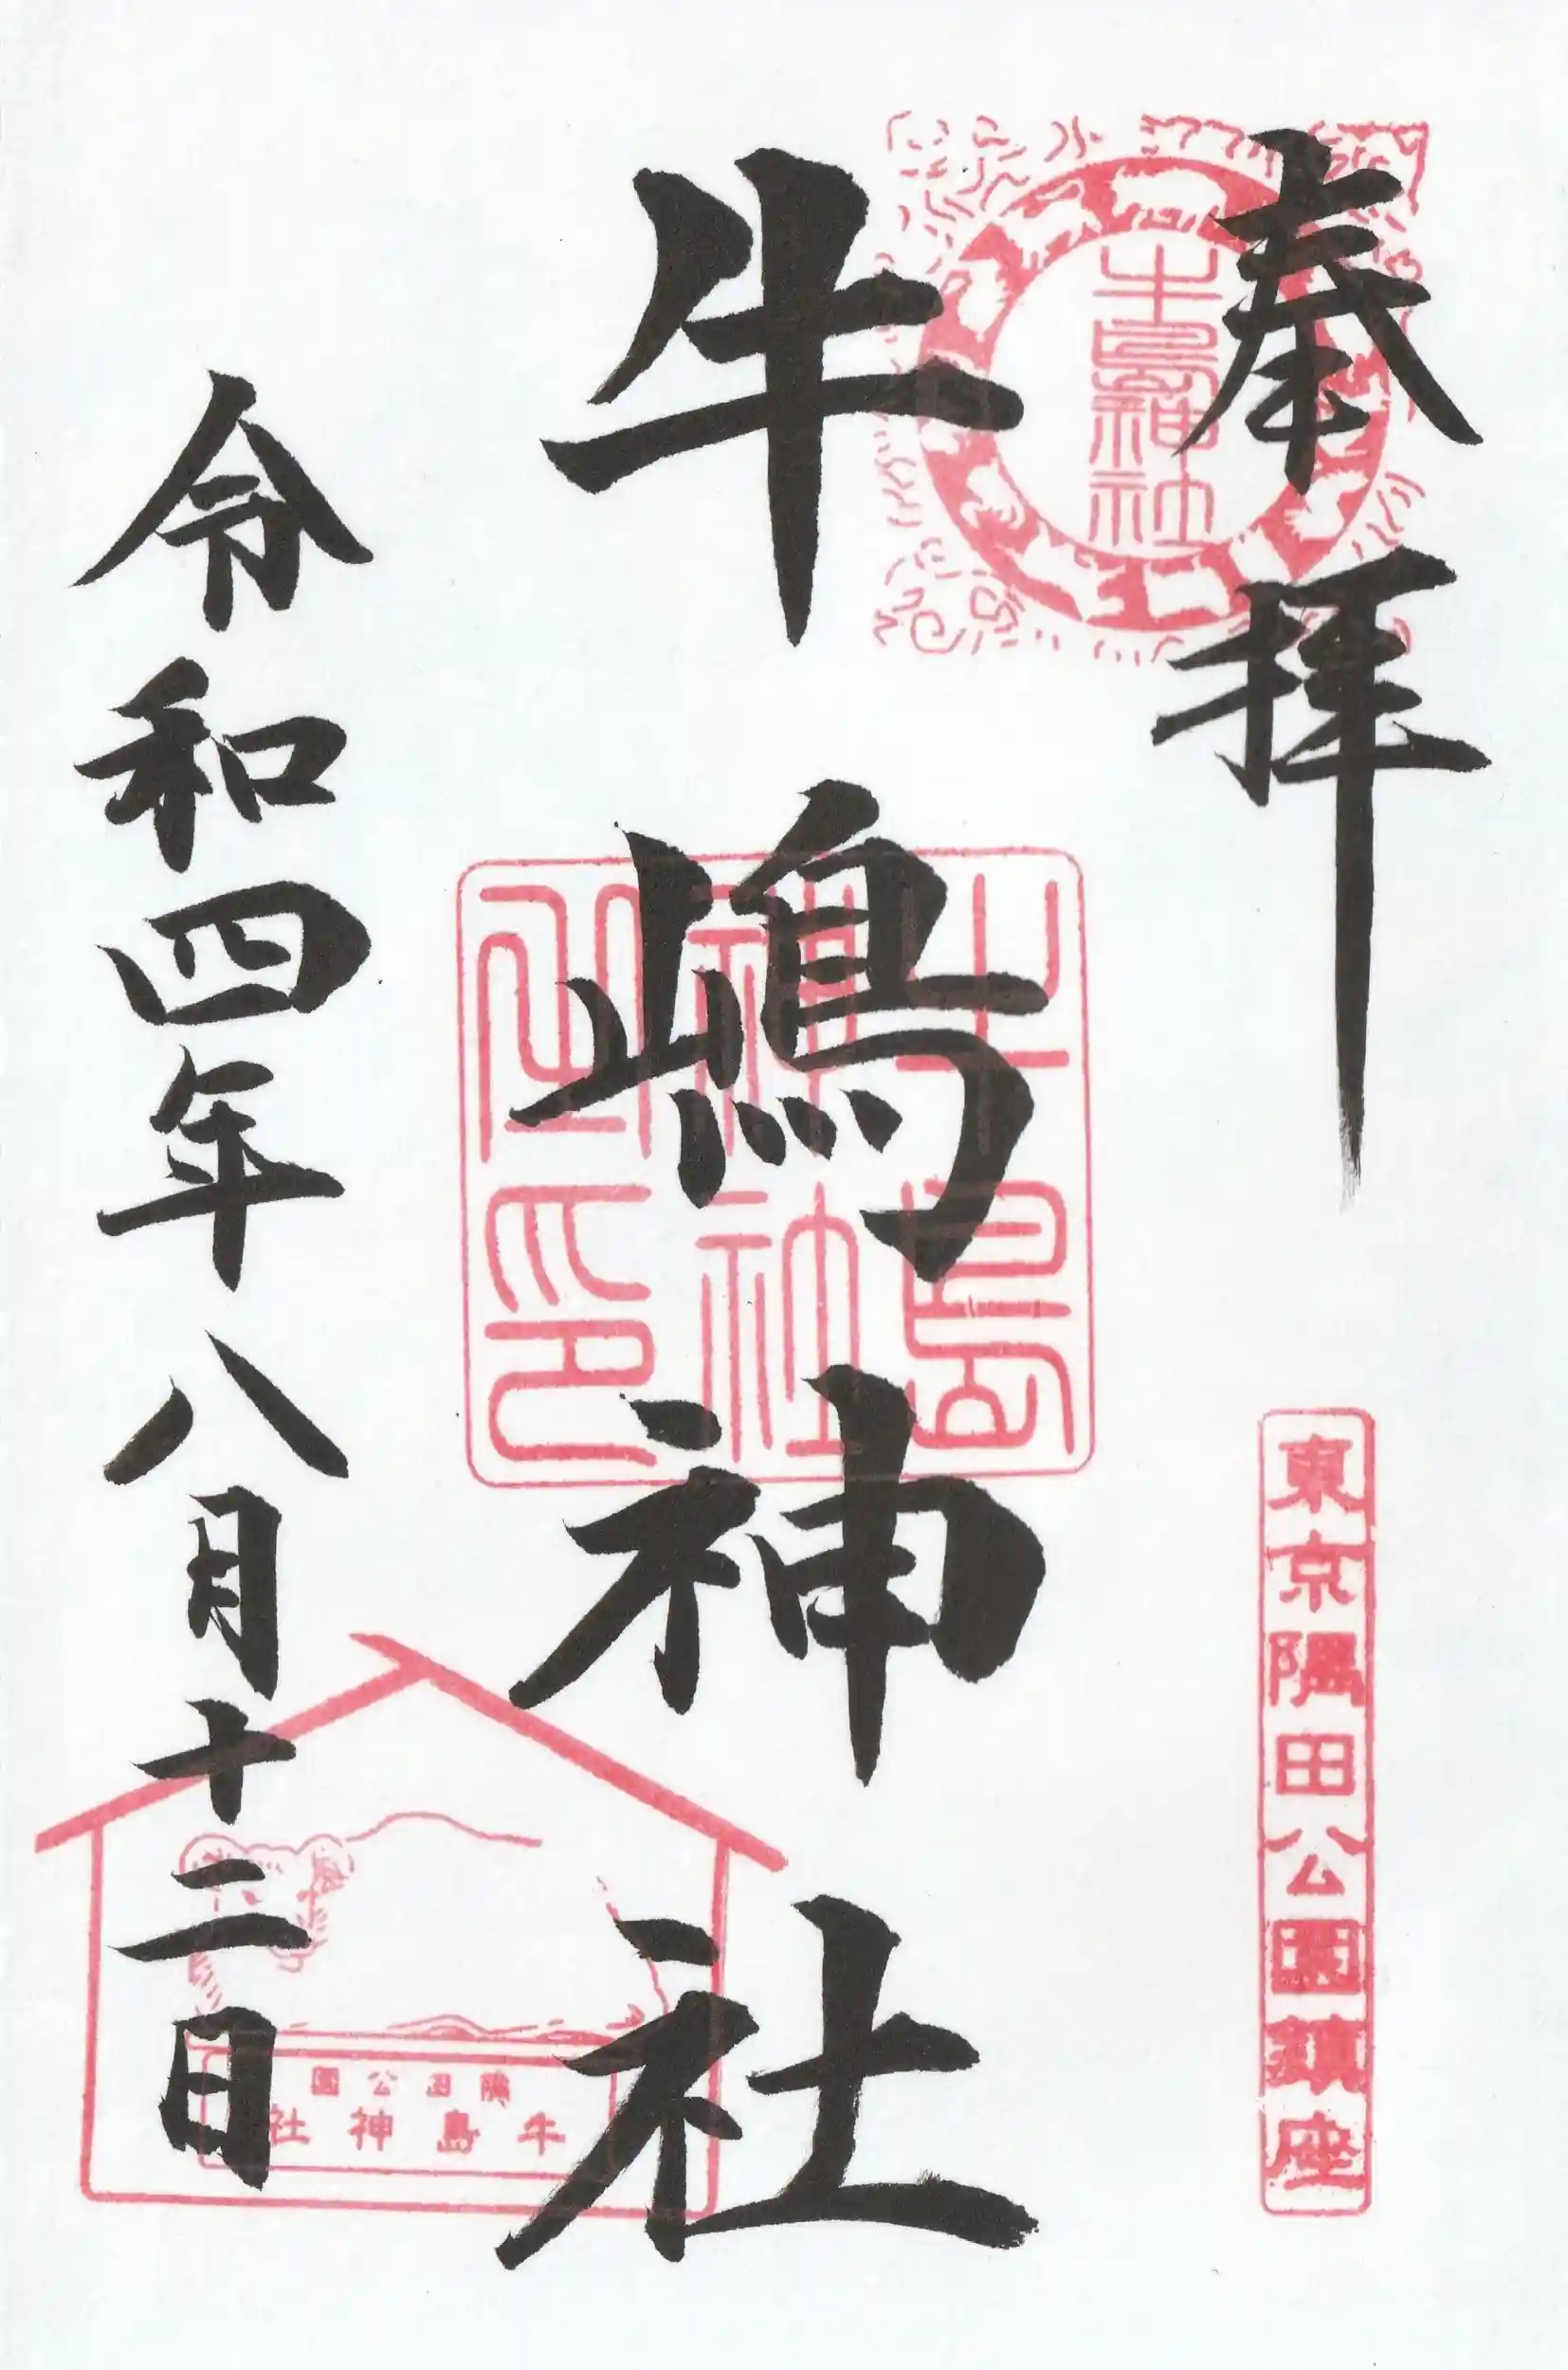 奉拝
牛嶋神社
令和四年八月十二日
牛島神社
牛島神社之印
東京隅田公園鎮座
隅田公園
牛島神社